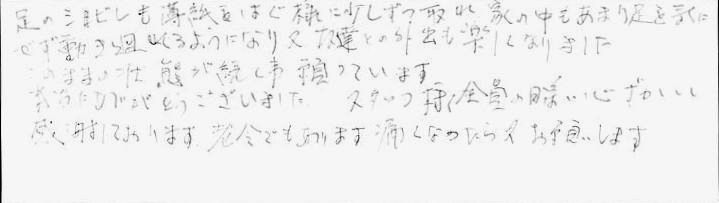 足のシビレも薄紙をはぐ様に少しずつ取れ 家の中もあまり足を気に
せず動き廻れるようになり又友達との外出も楽しくなりました
このままの状態が続く事願っています
本当にありがとうございました。 スタッフ様全員の暖い心づかいに
感謝しております 老令でもあります 痛くなったら又お願いします